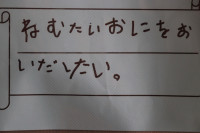 ねむたいおしにをお
いだしたい。